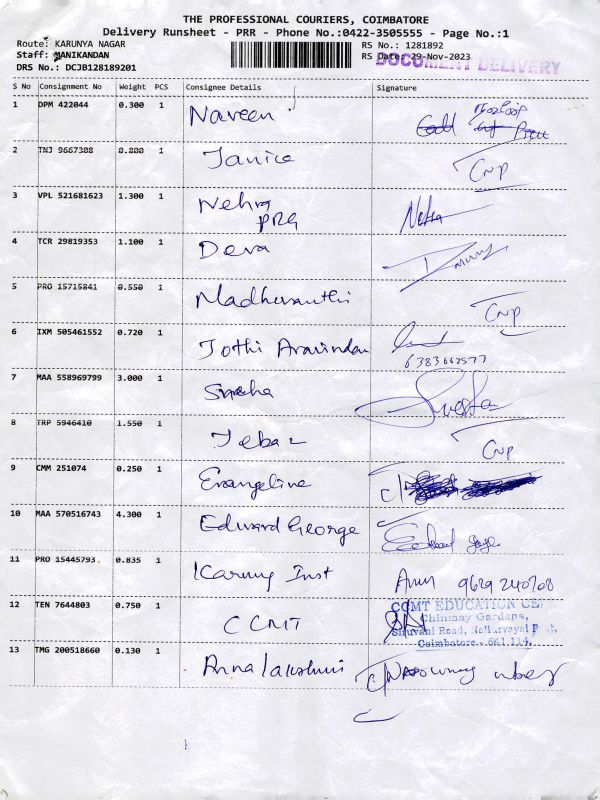 THE PROFESSIONAL COURIERS, COIMBATORE
Delivery Runsheet - PRR - Phone No.:0422-3505555 - Page No.:1
Route: KARUNYA NAGAR RS No.: 1281892
Staff: MANIKANDAN RS Date: 29-Nov-2023
DOCUMENT DELIVERY
DRS No.: DCJB128189201
S No Consignment No Weight PCS Consignee Details Signature
1 DPM 422044 0.300 1 Naveen
2 TNJ 9667308 0.800 1 Janice CNP
3 VPL 521681623 1.300 1 Nehra Neha
PRG
4 TCR 29819353 1.100 1 Deva
5 PRO 15715841 0.550 1 Madhuvanthi CNP
6 IXM 505461552 0.720 1 Jothi Aravindan
6383662577
7 MAA 558969799 3.000 1 Sneha
8 TRP 5946410 1.550 1 Jeba CNP
9 CMM 251074 0.250 1 Evangeline C/
10 MAA 570516743 4.300 1 Edward George
11 PRO 15445793 0.835 1 Karuny Inst Arun
12 TEN 7644803 0.750 1 CCMT
CCMT EDUCATION
Chinmay Gardens,
Siruvani Road, Nallurvayal Post,
Coimbatore - 641 114.
13 TMG 200518660 0.130 1 Annalakshmi